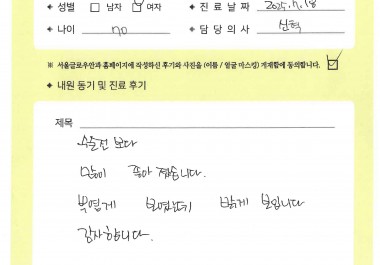 ◆ 성별 □ 남자 ☑ 여자
◆ 진료날짜 2025.7.18
◆ 나이 no
◆ 담당의사
※ 서울글로우안과 홈페이지에 작성하신 후기와 사진을 (이름 / 얼굴 마스킹) 게재함에 동의합니다. ☑
◆ 내원 동기 및 진료 후기
제목
수술전 보다
많이 좋아 졌습니다.
뿌옇게 보였는데 밝게 보입니다
감사합니다.